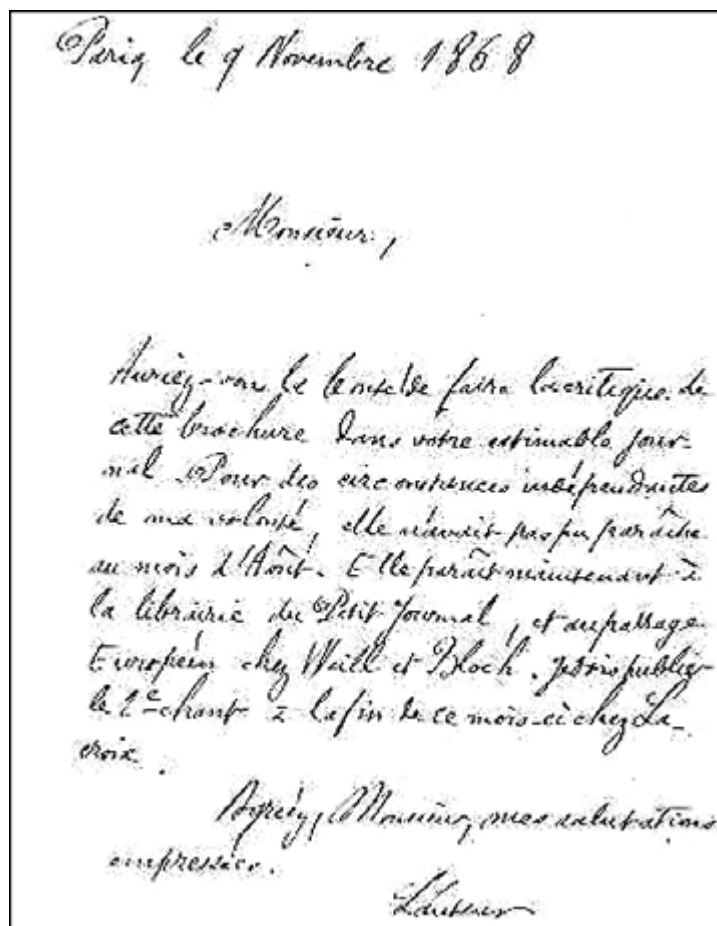 Paris le 9 Novembre 1868
Monsieur,
Auriez-vous la bonté de faire la critique de
cette brochure dans votre estimable jour-
nal. Pour des circonstances indépendantes
de ma volonté, elle n'avait pas pu paraître
au mois d'Août. Elle paraît maintenant à
la librairie du Petit Journal, et au passage
Européen chez Weill et Bloch. Je dois publier
le 2e chant à la fin de ce mois-ci chez La-
croix.
Agréez, Monsieur, mes salutations
empressées.
L'auteur